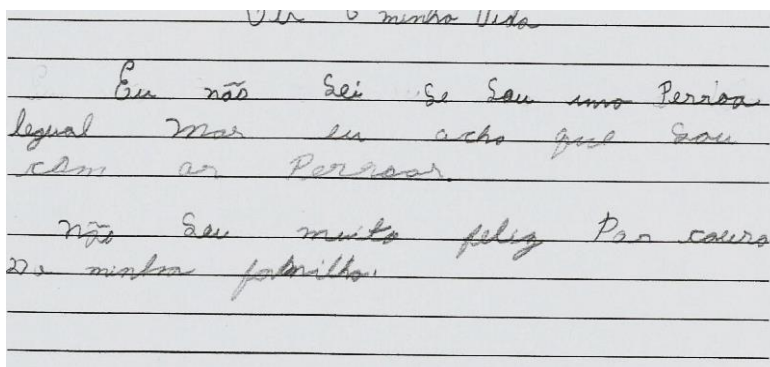 minha Vida
Eu não Sei Se Sou uma Perssoa
legual Mas eu acho que Sou
com as Perssoas.
não Sou muito feliz Por causa
De minha familha.